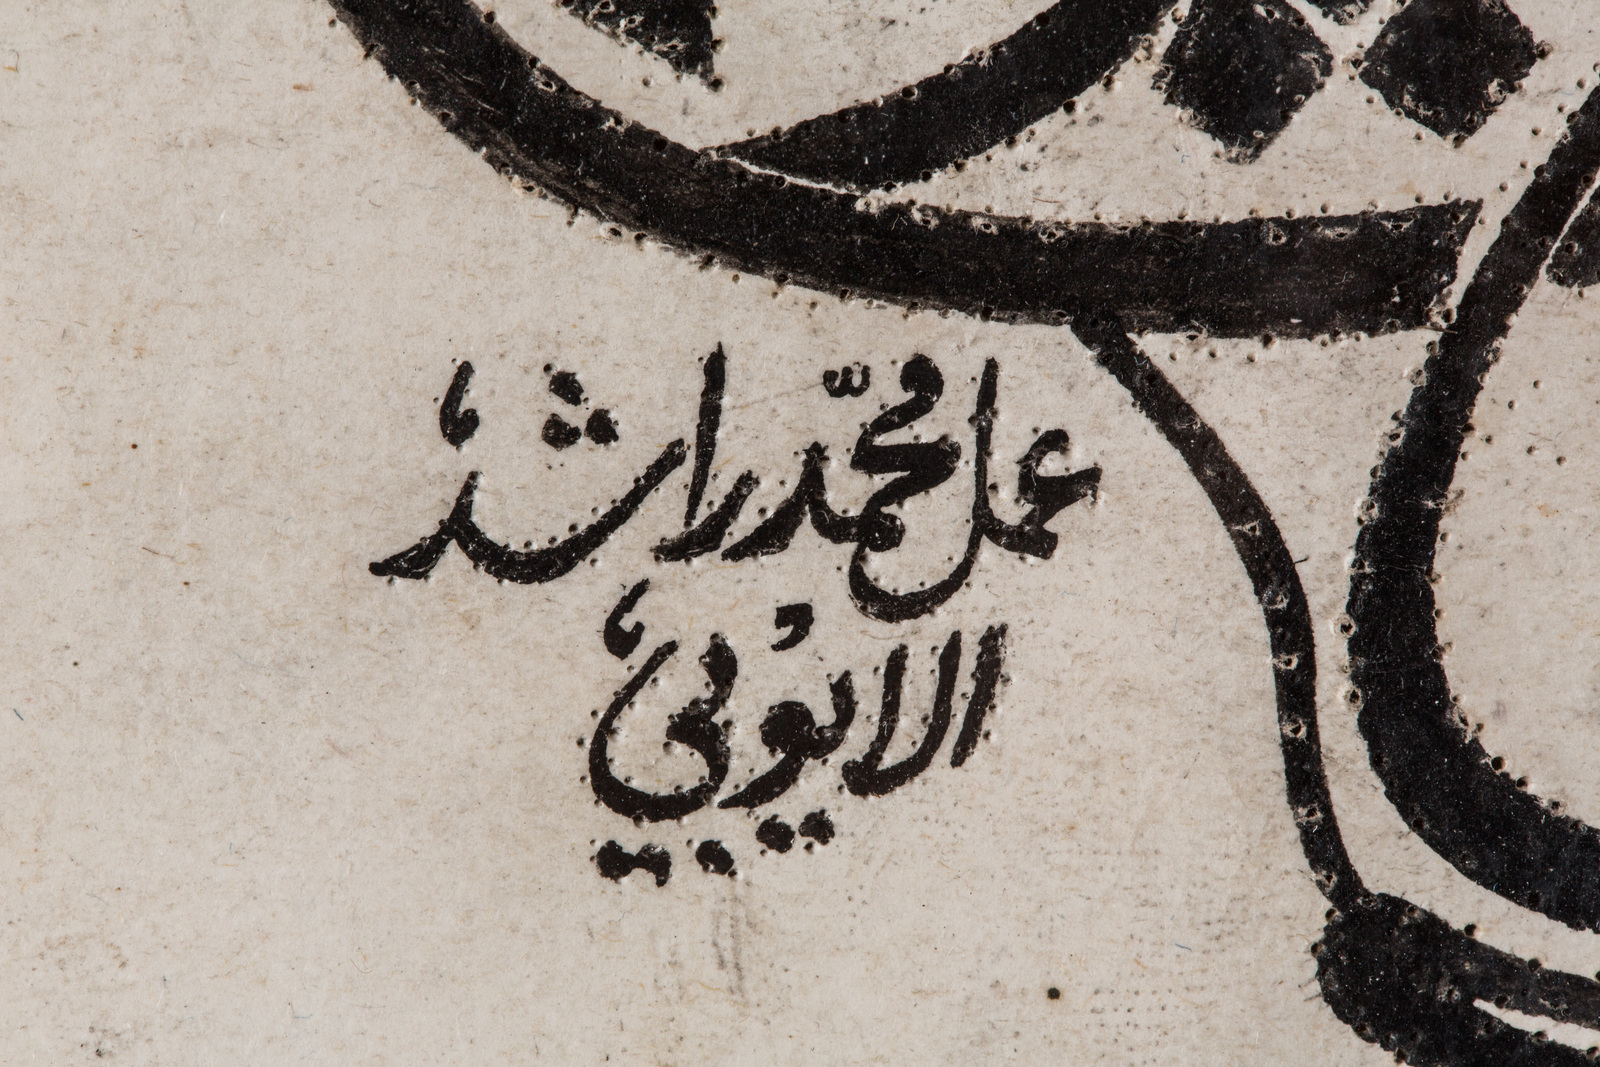 عمل محمّد راشد
الايوبي